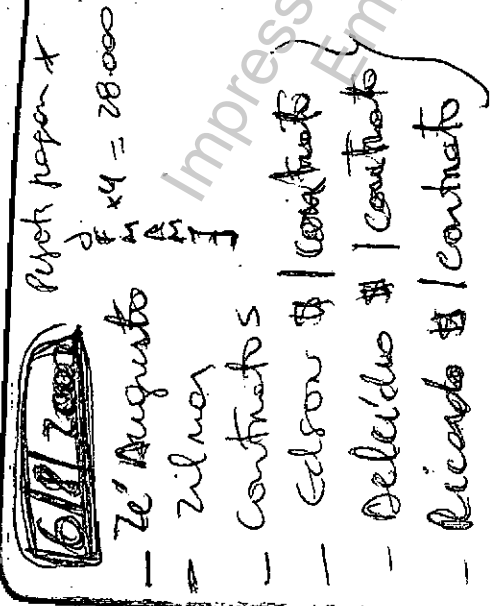 6/8/2000
x4 = 28.000
- Zé Augusto
- Zilmar
- Contratos
- Edson $ / contrato
- Delcídio $ / contrato
- Ricardo $ / contrato
Impress
Em